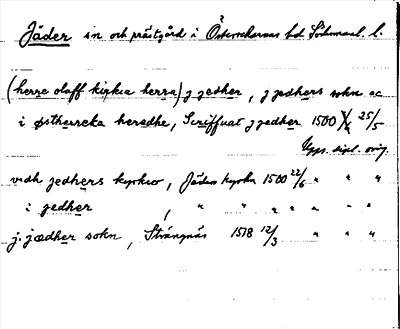 Jäder sn och prästgård i Österrekarnes hd Södermanl. l.
(herre olaff kirkia herra) j jedher, j jedhers sokn oc
i østherreka heredhe, Scriffuat j jedher 1500 25/5
Upps. dipl. orig.
vidh jedhers kyrkio, Jäders kyrka 1500 22/6 " " "
i jedher , " " " " " "
j. jædher sokn, Strängnäs 1518 12/3 " " "